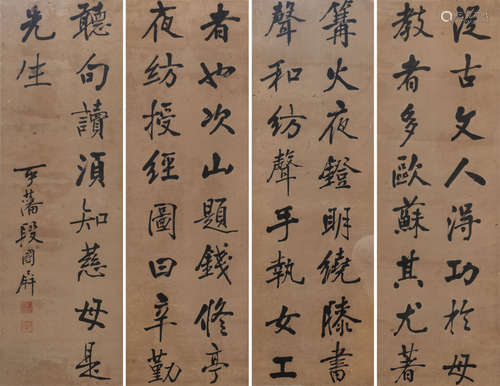 從古文人淂功於母
教者多歐蘇其尤著
篝火夜鐙明繞膝書
聲和紡聲手執女工
者也次山題錢修亭
夜紡授經圖曰辛勤
聽句讀須知慈母是
先生
藩段國屏